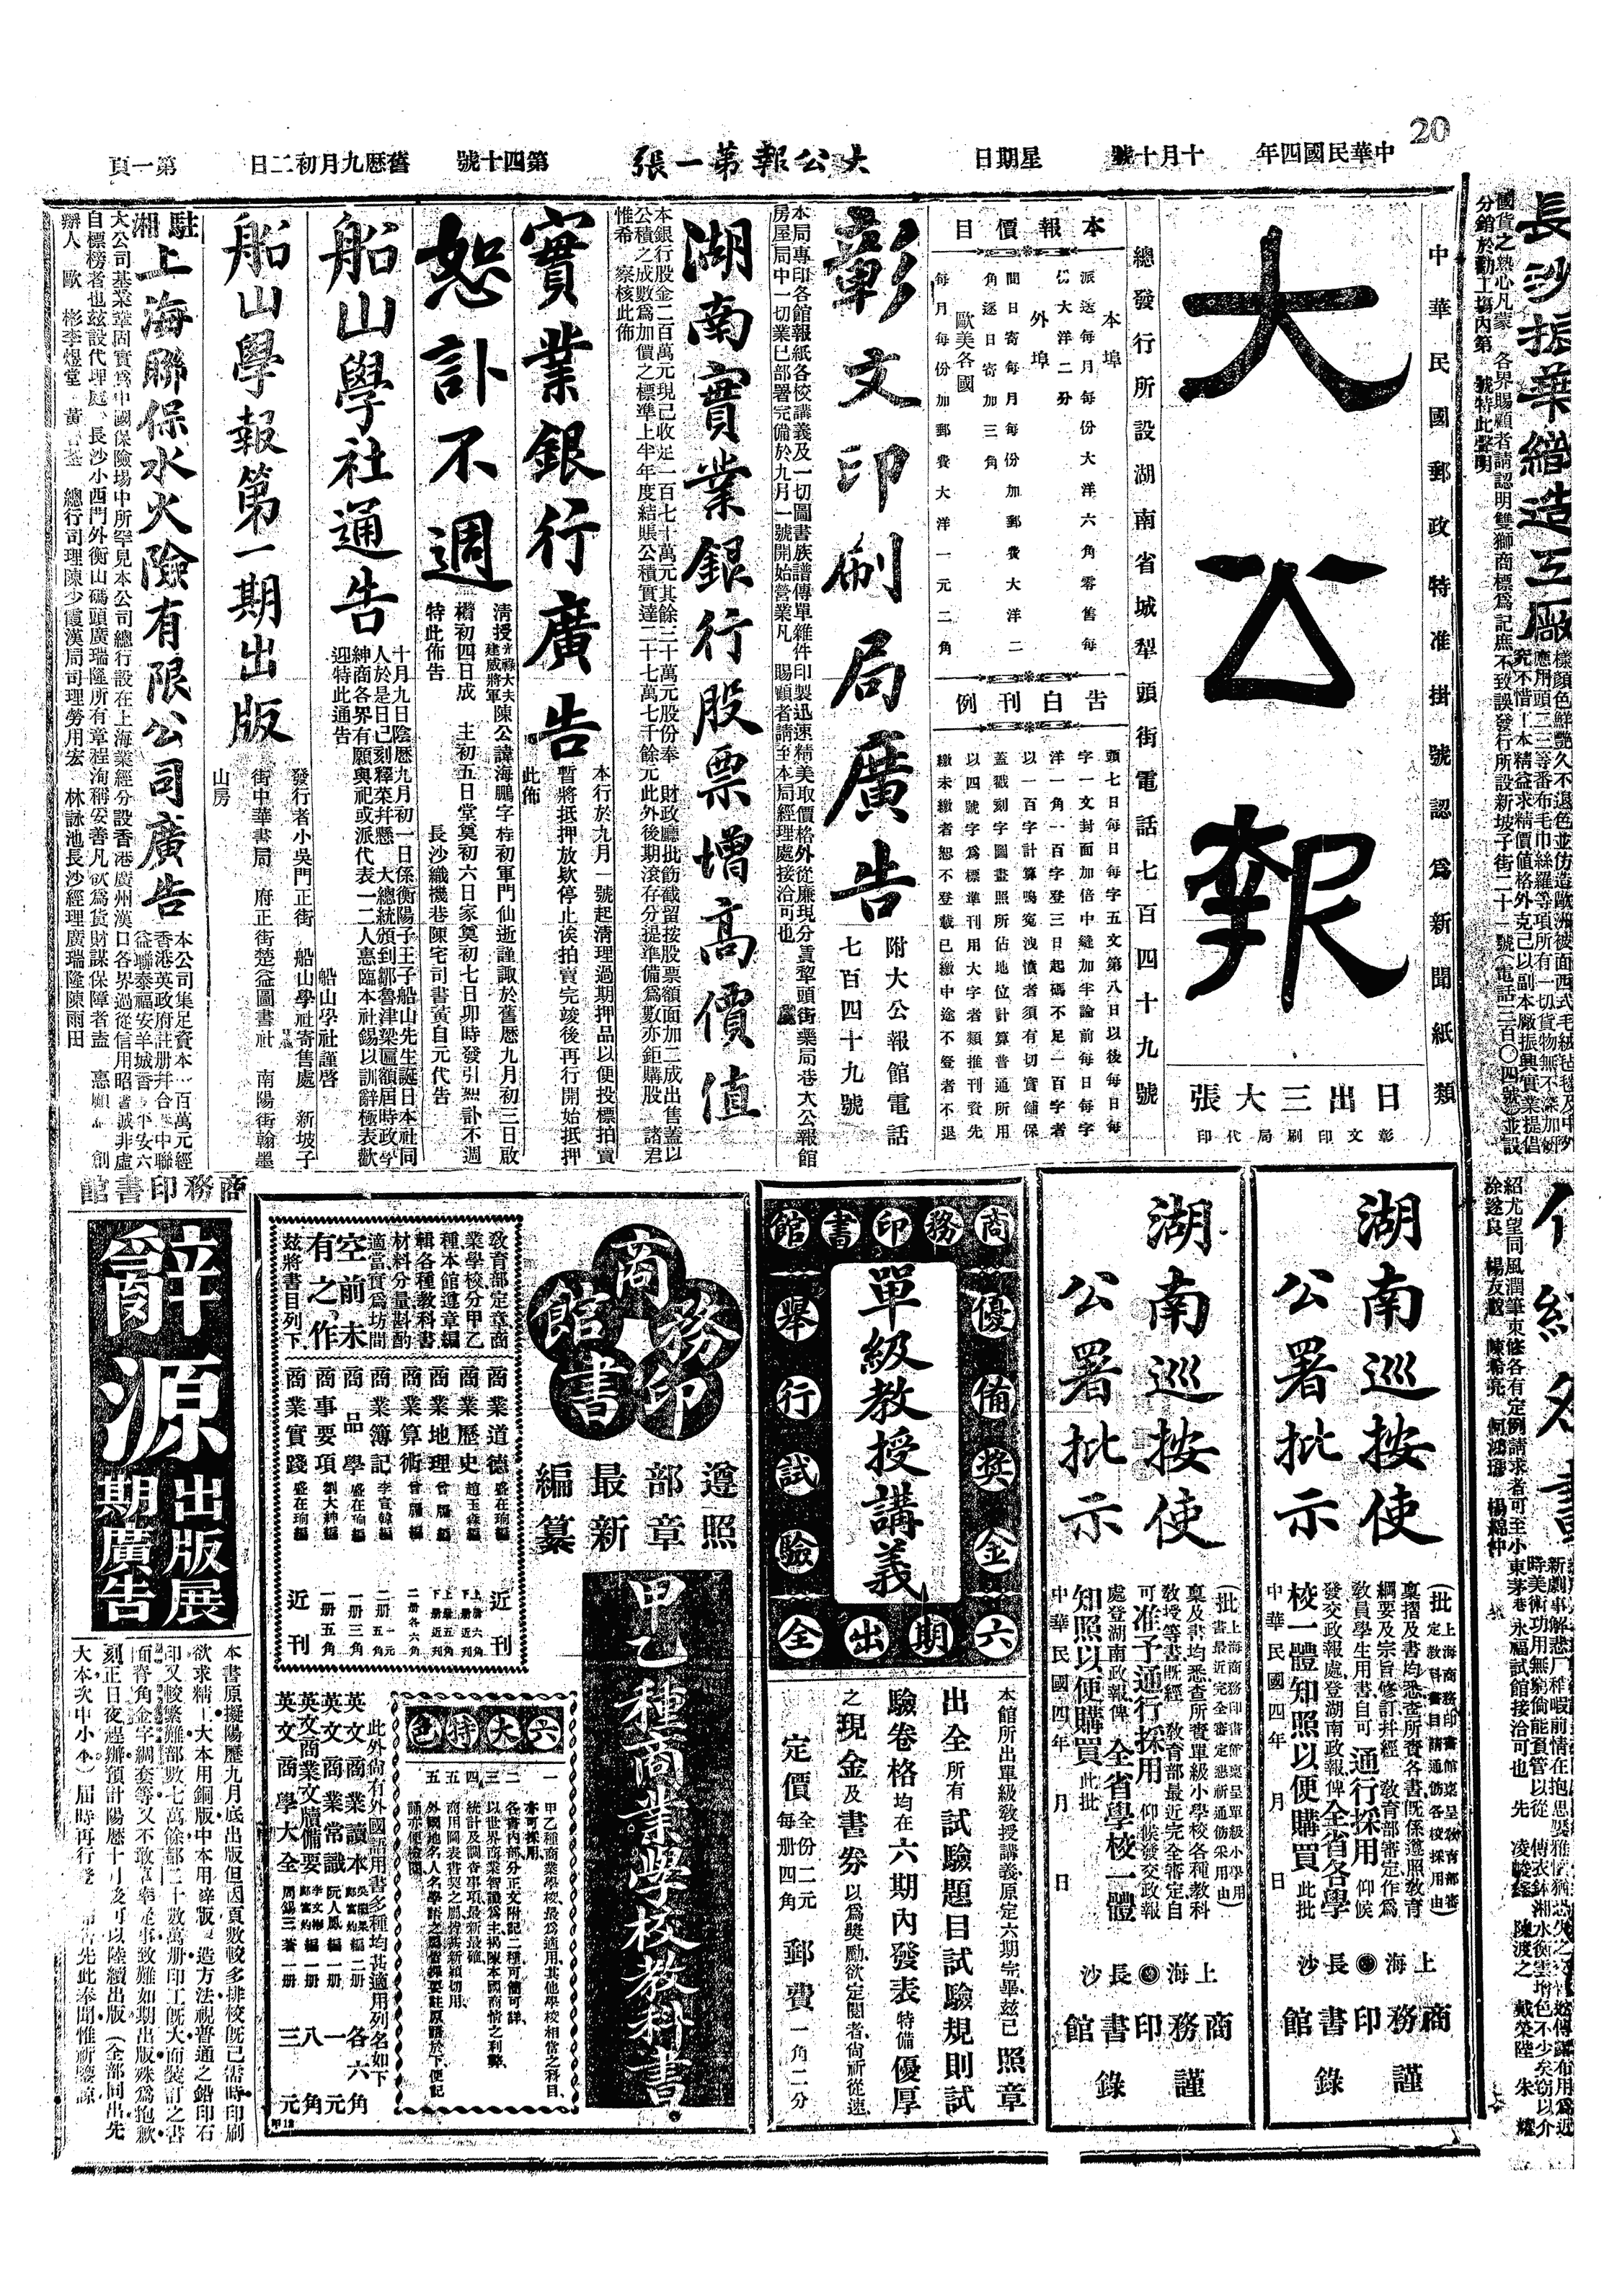 20
中華民國四年　十月十號　星期日　大公報第一張　第四十號　舊歷九月初二日　第一頁
長沙振華織造工廠
國貨之熱心凡蒙　各界賜顧者請認明雙獅商標爲記庶不致誤發行所設新坡子街二十一號(電話三百〇四號)並設
分銷於勸工塲內第　號特此聲明
中華民國郵政特准掛號認爲新聞紙類
大公報
日出三大張
彰文印刷局代印
總發行所設湖南省城犁頭街電話七百四十九號
本報價目
本埠
派送每月每份大洋六角零售每
份大洋二分
外埠
間日寄每月每份加郵費大洋二
角逐日寄加三角
歐美各國
每月每份加郵費大洋一元二角
告白刊例
頭七日每日每字五文第八日以後每日每
字一文封面加倍中縫加半論前每日每字
洋一角一百字登三日起碼不足一百字者
以一百字計算鳴寃洩憤者須有切實舖保
蓋戳刻字圖畫照所佔地位計算普通所用
以四號字爲標準刊用大字者類推刊資先
繳未繳者恕不登載已繳中途不登者不退
彰文印刷局廣告
附大公報館電話
七百四十九號
本局專印各館報紙各校講義及一切圖書族譜傳單雜件印製迅速精美取價格外從廉現分賣犁頭街藥局巷大公報館
房屋局中一切業已部署完備於九月一號開始營業凡　賜顧者請至本局經理處接洽可也
湖南實業銀行股票增高價值
本銀行股金二百萬元現已收足一百七十萬元其餘三十萬元股份奉　財政廳批飭截留按股票額面加二成出售蓋以
公積之成數爲加價之標準上半年度結賬公積實達二十七萬七千餘元此外後期滾存分提準備爲數亦鉅購股　諸君
惟希　察核此佈
實業銀行廣告
本行於九月一號起清理過期押品以便投標拍賣
暫將抵押放欵停止俟拍賣完竣後再行開始抵押
此佈
恕訃不週
清授光祿大夫建威將軍陳公諱海鵬字桂初軍門仙逝謹諏於舊歷九月初三日啟
櫕初四日成　主初五日堂奠初六日家奠初七日卯時發引恕訃不週
特此佈告　長沙織機巷陳宅司書黃自元代告
船山學社通告
十月九日陰歷九月初一日係衡陽子王子船山先生誕日本社同
人於是日已刻釋菜幷懸　大總統頒到鄒魯津梁匾額屆時政學
紳商各界有願與祀或派代表一二人惠臨本社錫以訓辭極表歡
迎特此通告　船山學社謹啓
船山學報第一期出版
發行者小吳門正街　船山學社寄售處　新坡子
街中華書局　府正街楚益圖書社　南陽街翰墨
山房
駐湘上海聯保水火險有限公司廣告
本公司集足資本一百萬元經
香港英政府註册幷合　中聯
益聯泰福安羊城
大公司基業鞏固實爲中國保險塲中所罕見本公司總行設在上海業經分設香港廣州漢口各界過從信用昭著誠非虛
自標榜者也茲設代理處、長沙小西門外衡山碼頭廣瑞隆所有章程洵稱安善凡欲爲貨財謀保障者盍　惠願　創
辦人　歐　彬李煜堂　黃　　總行司理陳少霞漢局司理勞用宏　林詠池長沙經理廣瑞隆陳雨田
湖南巡按使
公署批示
(批上海商務印書館稟呈敎育部審定敎科書目請通飭各校採用由)
稟摺及書均悉查所賫各書旣係遵照敎育
綱要及宗旨修訂幷經　敎育部審定作爲
敎員學生用書自可通行採用仰候
發交政報處登湖南政報俾全省各學
校一體知照以便購買此批
中華民國四年　月　日
上海　長沙
商務印書館
謹錄
湖南巡按使
公署批示
(批上海商務印書館稟呈單級小學用書最近完全審定懇祈通飭采用由)
稟及書均悉查所賫單級小學校各種敎科
敎授等書旣經　敎育部最近完全審定自
可准予通行採用　仰候發交政報
處登湖南政報俾全省學校一體
知照以便購買此批
中華民國四年　月　日
上海　長沙
商務印書館
謹錄
商務印書館
優備奬金
單級教授講義
舉行試驗
六期出全
本館所出單級敎授講義原定六期完畢茲已照章
出全所有試驗題目試驗規則試
驗卷格均在六期內發表特備優厚
之現金及書券以爲奬勵欲定閱者尙祈從速
定價全份二元每册四角　郵費一角二分
商務印書館
遵照部章最新編纂
甲乙種商業學校敎科書
敎育部定章商
業學校分甲乙
種本館遵章編
輯各種敎科書
材料分量斟酌
適當實爲坊間
空前未
有之作
茲將書目列下
商業道德　盛在珦編　近刊
商業歷史　趙玉森編
商業地理　曾膺編
商業算術　曾膺編　二册各六角
商業簿記　李宣韓編
商品學　盛在珦編　一册三角
商事要項　劉大紳編　一册五角
商業實踐　盛在珦編　近刊
六大特色
一　甲乙種商業學校最爲適用其他學校相當之科目、
亦可採用、
二　各書內部分正文附記二種可簡可詳
三　以世界商業智識爲主揭陳本國商情之利弊、
四　統計及調查事項最新最確、
五　商用圖表書契之屬皆甚新穎切用、
五　外國地名人名學語之屬皆擇要註原語於下、便記
誦亦便檢閱、
此外尙有外國語用書多種均甚適用列名如下
英文商業讀本　二册　各六角
英文商業常識　阮人鳳編　一册　一元
英文商業文牘備要　一册　八角
英文商學大全　周錫三著　一册　三元
商務印書館
辭源
出版展期廣告
本書原擬陽歷九月底出版但因頁數較多排校旣已需時印刷
欲求精工大本用銅版中本用鋅版製造方法視普通之鉛印石
印又較繁難部數七萬餘部二十數萬册印工旣大而裝訂之書
面脊角金字綢套等又不敢草率從事致難如期出版殊爲抱歉
刻正日夜趕辦預計陽歷十月後可以陸續出版(全部同出先
大本次中小本)屆時再行登　　先此奉聞惟祈鑒諒